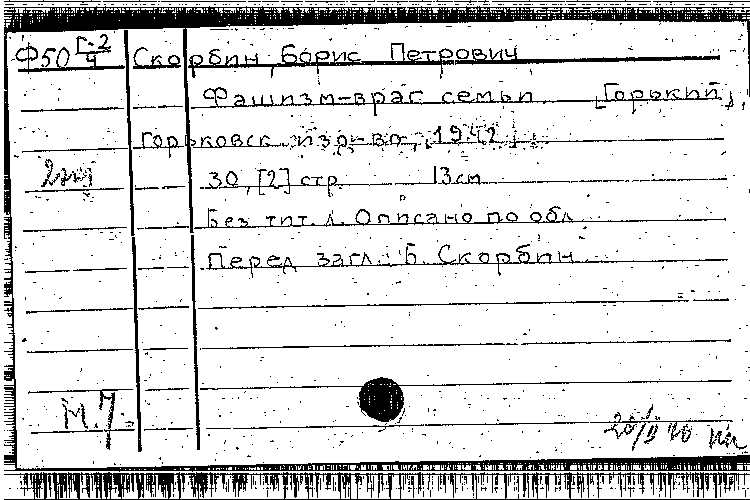 Ф50 Г-2/4 Скорбин, Борис Петрович
Фашизм-враг семьи. [Горький],
Горьковск. изд-во, [1942].
2экз 30, [2] стр. 13см
Без тит. л. Описано по обл.
Перед загл.: Б. Скорбин
М.7